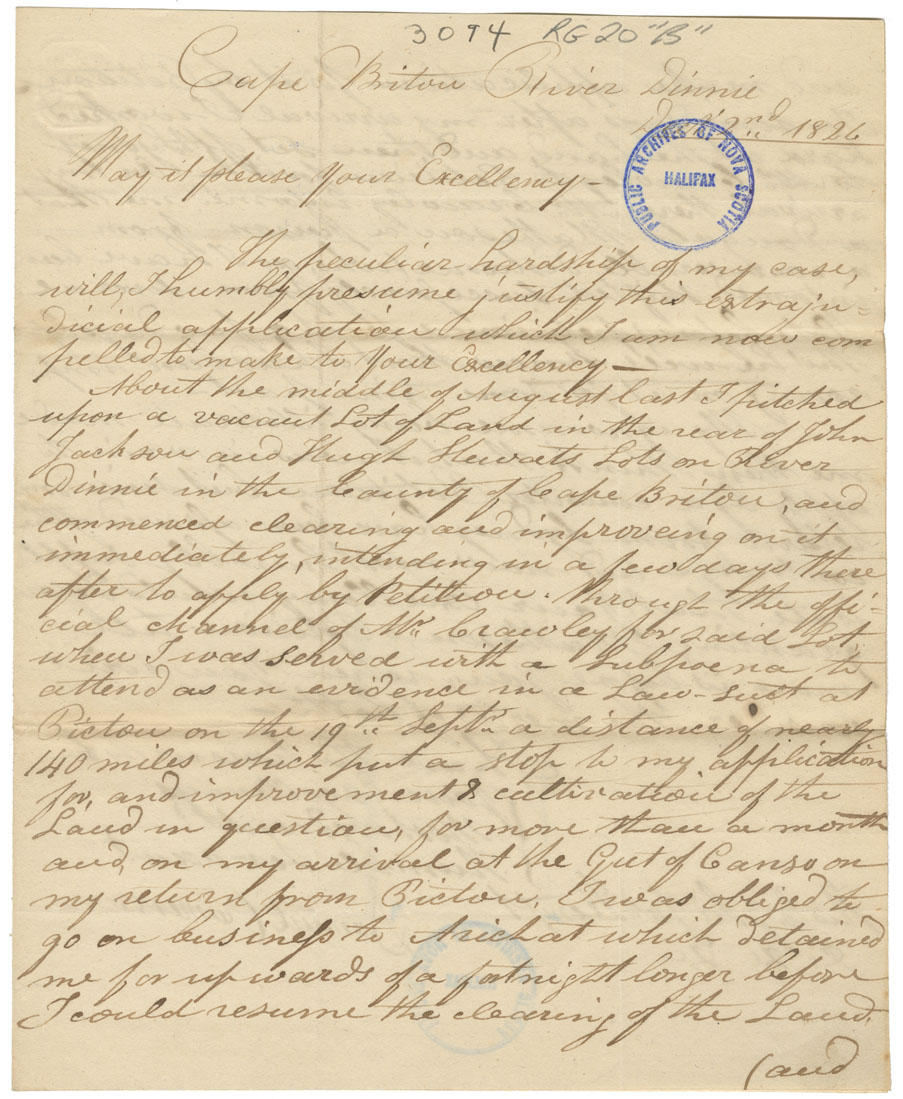 3094 RG 20 "B"
Cape Briton River Dinnie
2nd 1826
PUBLIC ARCHIVES OF NOVA SCOTIA
HALIFAX
May it please Your Excellency—
The peculiar hardship of my case,
will, I humbly presume justify this extraju-
dicial application which I am now com
pelled to make to Your Excellency—
About the middle of August last I pitched
upon a vacant Lot of Land in the rear of John
Jackson and Hugh Stewarts Lots on River
Dinnie in the County of Cape Briton, and
commenced clearing and improveing on it
immediately, intending in a few days there
after to apply by Petition through the offi-
cial channel of Mr. Crawley for said Lot,
when I was served with a Subpoena to
attend as an evidence in a Law-suit at
Pictou on the 19th Septr. a distance of nearly
140 miles which put a stop to my application
for, and improvement & cultivation of the
Land in question, for more than a month
and, on my arrival at the Gut of Canso on
my return from Pictou, I was obliged to
go on business to Arichat which detained
me for upwards of a fortnight longer before
I could resume the clearing of the Land.
(and